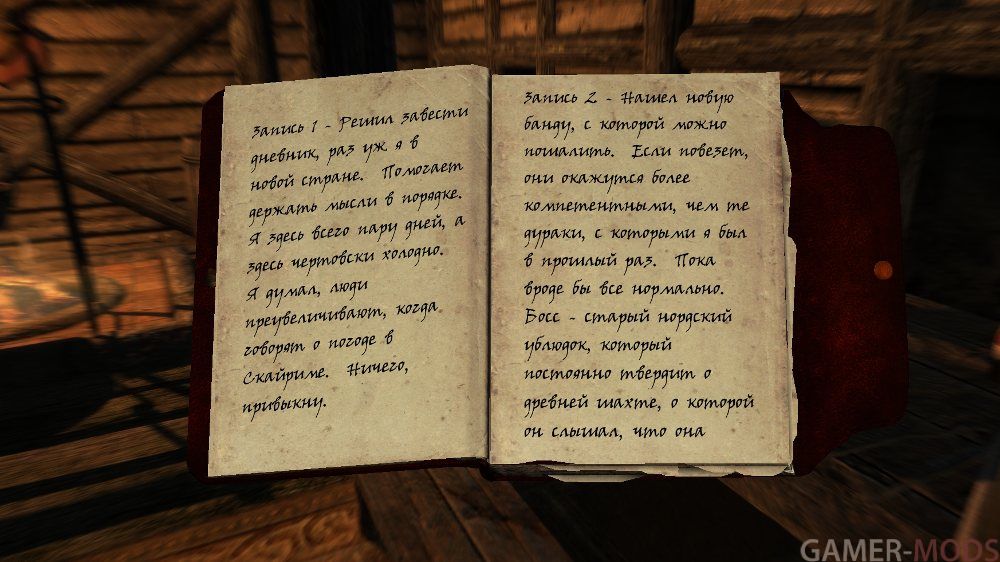 Запись 1 - Решил завести
дневник, раз уж я в
новой стране. Помогает
держать мысли в порядке.
Я здесь всего пару дней, а
здесь чертовски холодно.
Я думал, люди
преувеличивают, когда
говорят о погоде в
Скайриме. Ничего,
привыкну.
Запись 2 - Нашел новую
банду, с которой можно
пошалить. Если повезет,
они окажутся более
компетентными, чем те
дураки, с которыми я был
в прошлый раз. Пока
вроде бы все нормально.
Босс - старый нордский
ублюдок, который
постоянно твердит о
древней шахте, о которой
он слышал, что она
GAMER-MODS